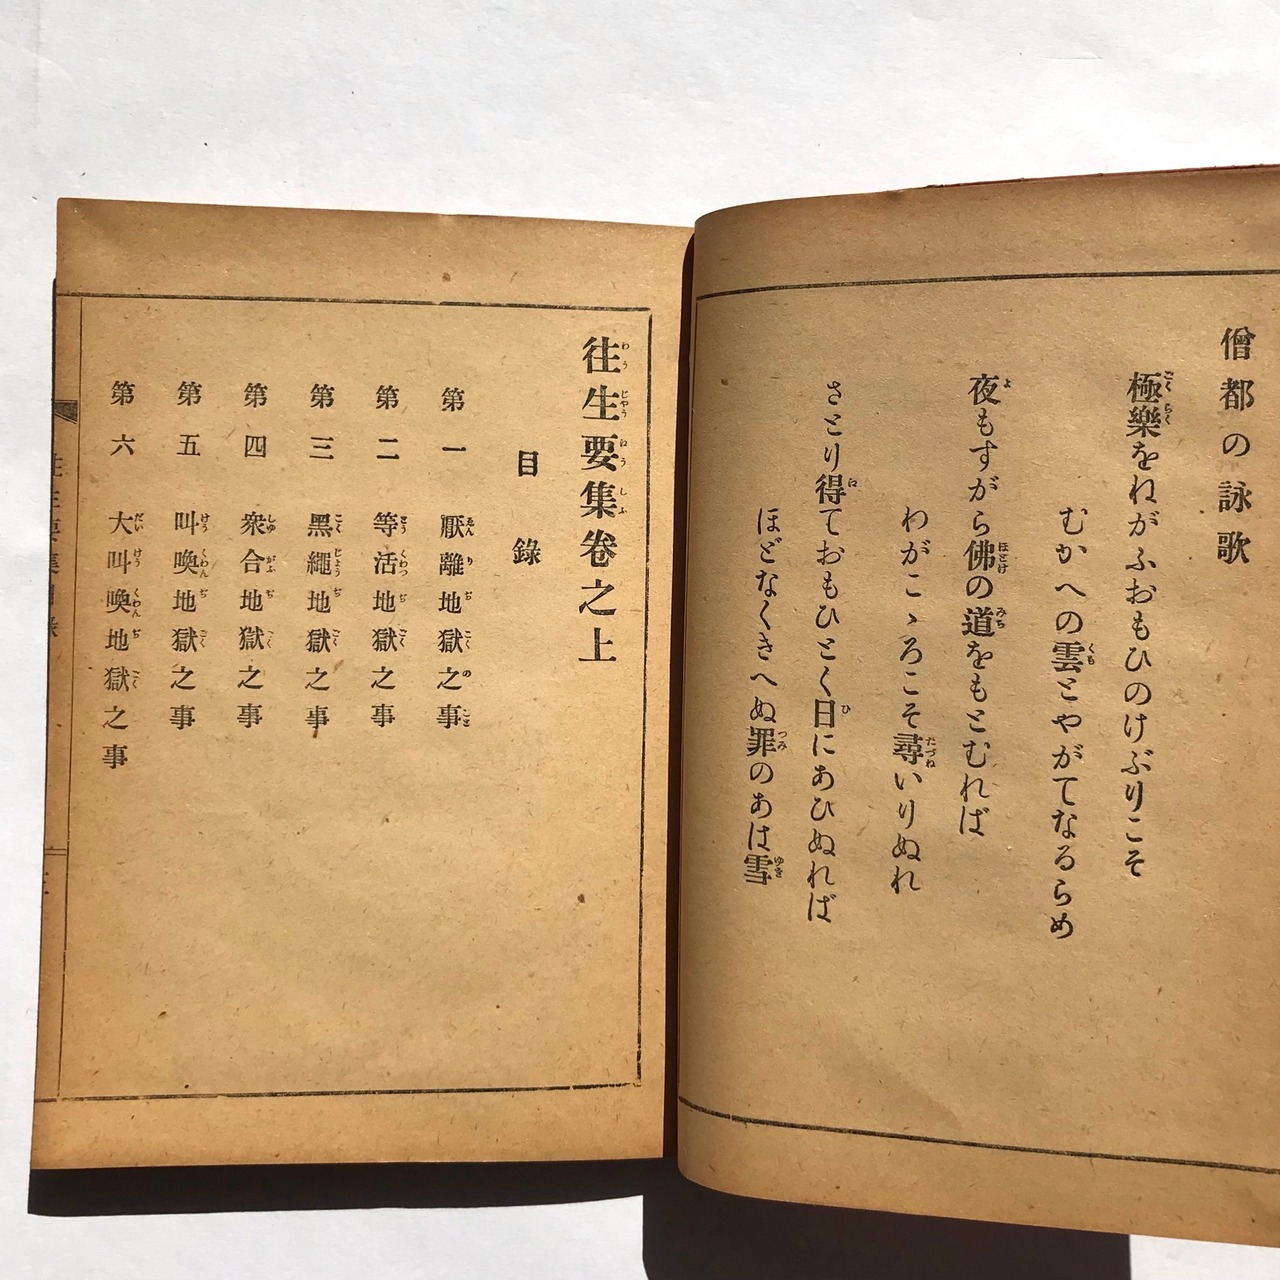 僧都の詠歌
極樂をねがふおもひのけぶりこそ
むかへの雲とやがてなるらめ
夜もすがら佛の道をもとむれば
わがこゝろこそ尋いりぬれ
さとり得ておもひとく日にあひぬれば
ほどなくきへぬ罪のあは雪
往生要集卷之上
目錄
第一 厭離地獄之事
第二 等活地獄之事
第三 黑繩地獄之事
第四 衆合地獄之事
第五 叫喚地獄之事
第六 大叫喚地獄之事